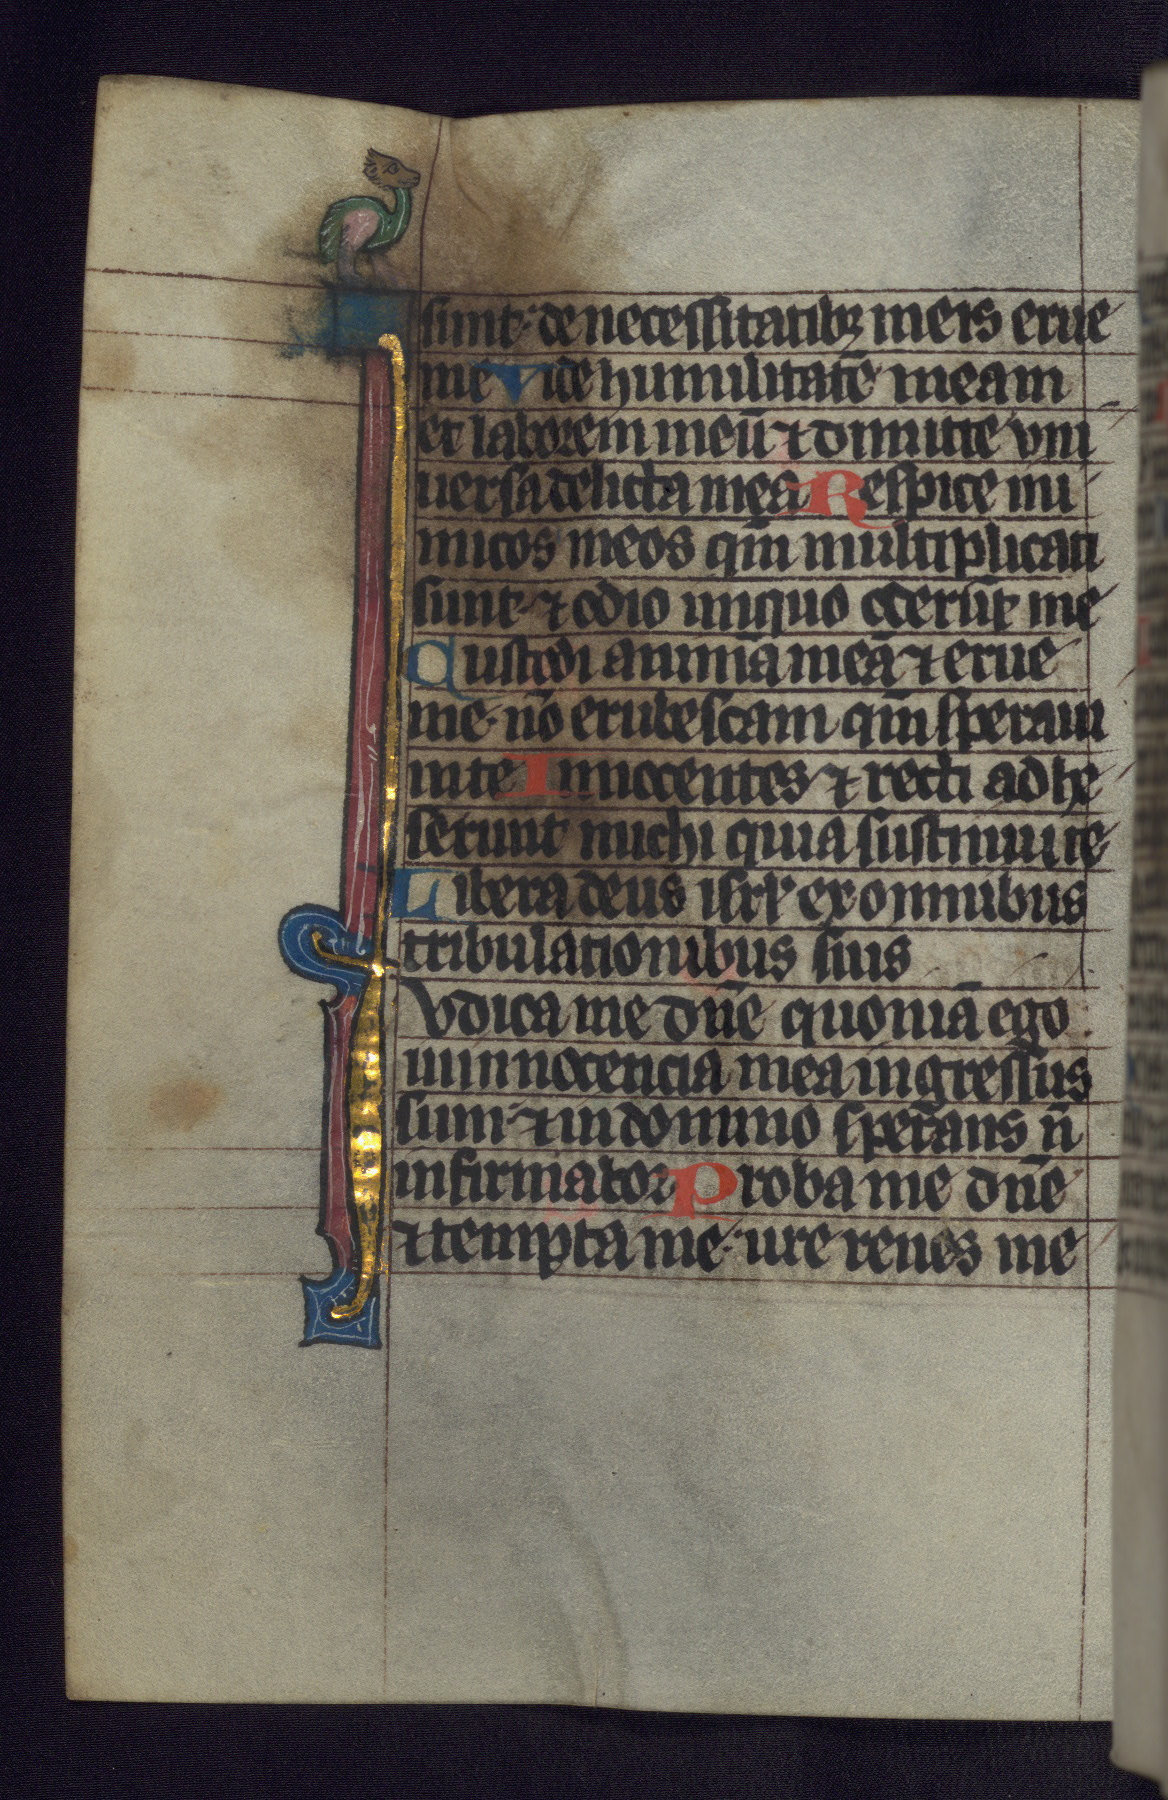 sunt de necessitatibꝫ meis erue
me Vide humilitatē meam
et laborem meū ⁊ dimitte vni
uersa delicta mea Respice ini
micos meos qm̄ multiplicati
sunt ⁊ odio iniquo oderūt me
Custodi animā meā ⁊ erue
me nō erubescam qm̄ speraui
in te Innocentes ⁊ recti adhe
serunt michi quia sustinui te
Libera deus isrl̓ ex omnibus
tribulationibus suis
Iudica me dn̄e quoniā ego
in innocencia mea ingressus
sum ⁊ in domino sperans n̄
infirmabor Proba me dn̄e
⁊ tempta me ure renes me